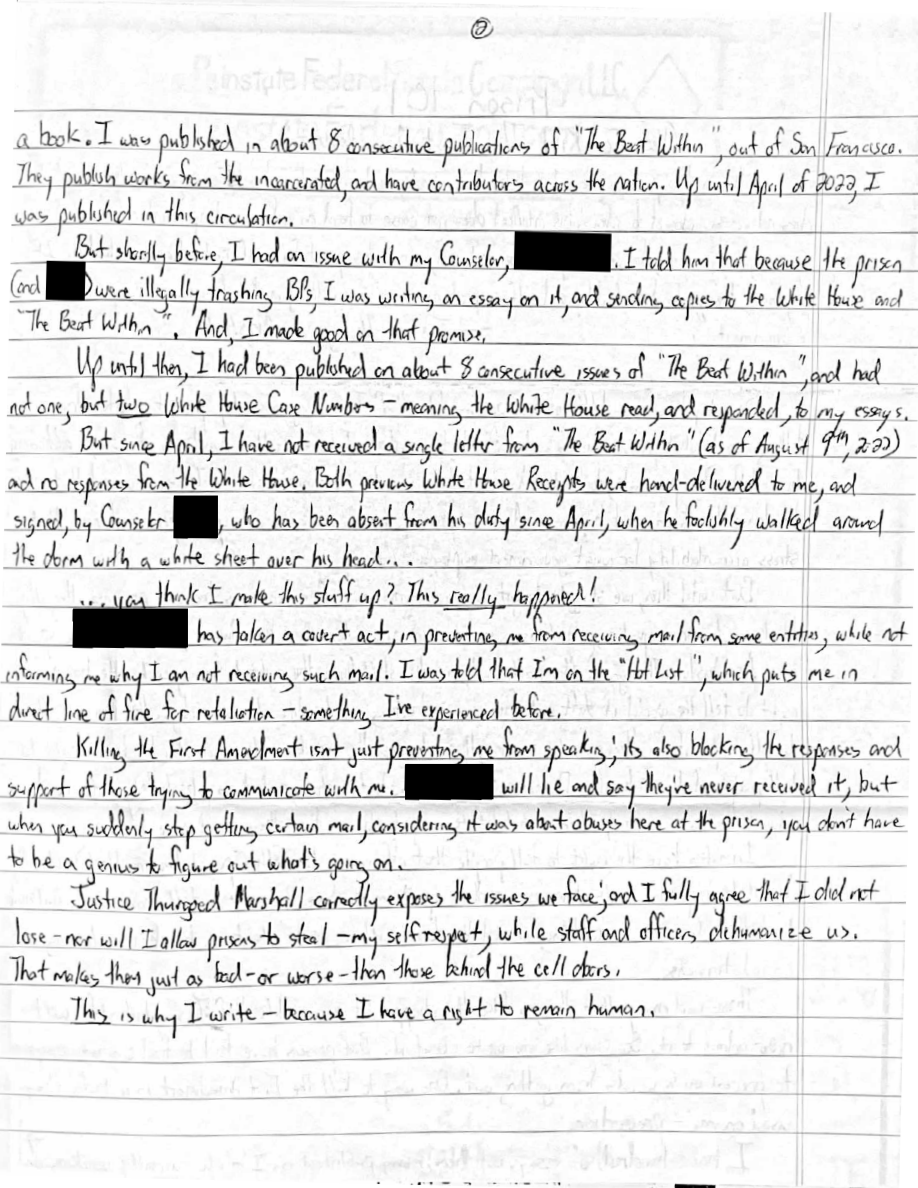 ②
a book. I was published in about 8 consecutive publications of "The Beat Within", out of San Francisco.
They publish works from the incarcerated, and have contributors across the nation. Up until April of 2022, I
was published in this circulation.
But shortly before, I had an issue with my Counselor, . I told him that because the prison
(and ) were illegally trashing BPs, I was writing an essay on it, and sending copies to the White House and
"The Beat Within". And, I made good on that promise.
Up until then, I had been published on about 8 consecutive issues of "The Beat Within", and had
not one, but two White House Case Numbers - meaning the White House read, and responded, to my essays.
But since April, I have not received a single letter from "The Beat Within" (as of August 9th, 2022)
and no responses from the White House. Both previous White House Receipts were hand-delivered to me, and
signed, by Counselor , who has been absent from his duty since April, when he foolishly walked around
the dorm with a white sheet over his head...
...you think I make this stuff up? This really happened!
has taken a covert act, in preventing me from receiving mail from some entities, while not
informing me why I am not receiving such mail. I was told that I'm on the "Hot List", which puts me in
direct line of fire for retaliation - something I've experienced before.
Killing the First Amendment isn't just preventing me from speaking; its also blocking the responses and
support of those trying to communicate with me. will lie and say they've never received it, but
when you suddenly stop getting certain mail, considering it was about abuses here at the prison, you don't have
to be a genius to figure out what's going on.
Justice Thurgood Marshall correctly expose the issues we face; and I fully agree that I did not
lose - nor will I allow prisons to steal - my self respect, while staff and officers dehumanize us.
That makes them just as bad - or worse - than those behind the cell doors.
This is why I write - because I have a right to remain human.